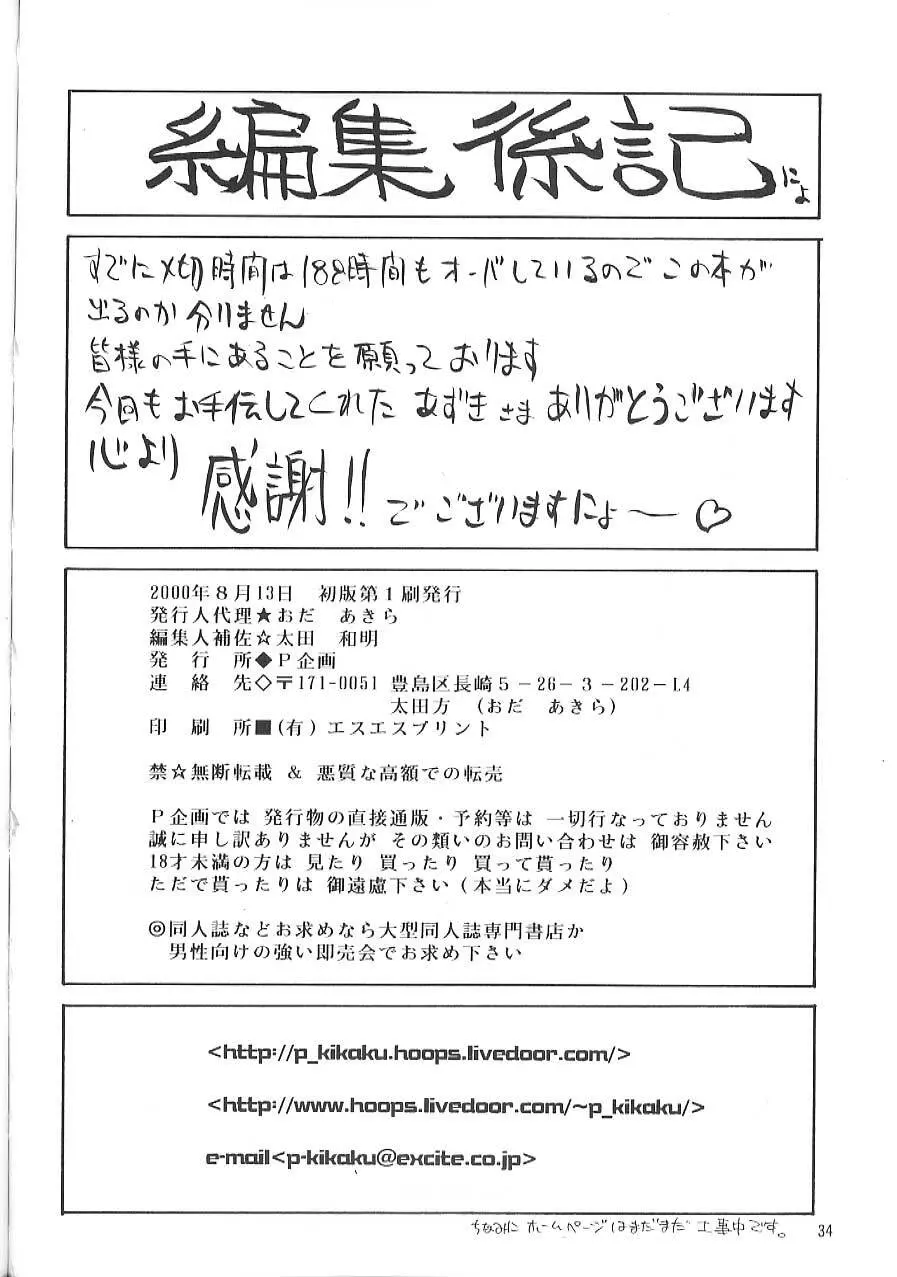 編集後記にょ
すでに〆切時間は188時間もオーバしているのでこの本が
出るのか分りません
皆様の手にあることを願っております
今回もお手伝してくれた あずきさま ありがとうございます
心より 感謝!! でございますにょ〜♡
2000年8月13日 初版第1刷発行
発行人代理★おだ あきら
編集人補佐☆太田 和明
発 行 所◆P企画
連 絡 先◇〒171-0051 豊島区長崎5-26-3-202-L4
太田方 (おだ あきら)
印 刷 所■(有)エスエスプリント
禁☆無断転載 & 悪質な高額での転売
P企画では 発行物の直接通販・予約等は 一切行なっておりません
誠に申し訳ありませんが その類いのお問い合わせは 御容赦下さい
18才未満の方は 見たり 買ったり 買って貰ったり
ただで貰ったりは 御遠慮下さい(本当にダメだよ)
◎同人誌などお求めなら大型同人誌専門書店か
男性向けの強い即売会でお求め下さい
<http://p_kikaku.hoops.livedoor.com/>
<http://www.hoops.livedoor.com/~p_kikaku/>
e-mail<p-kikaku@excite.co.jp>
ちなみに ホームページはまだまだ 工事中です。 34